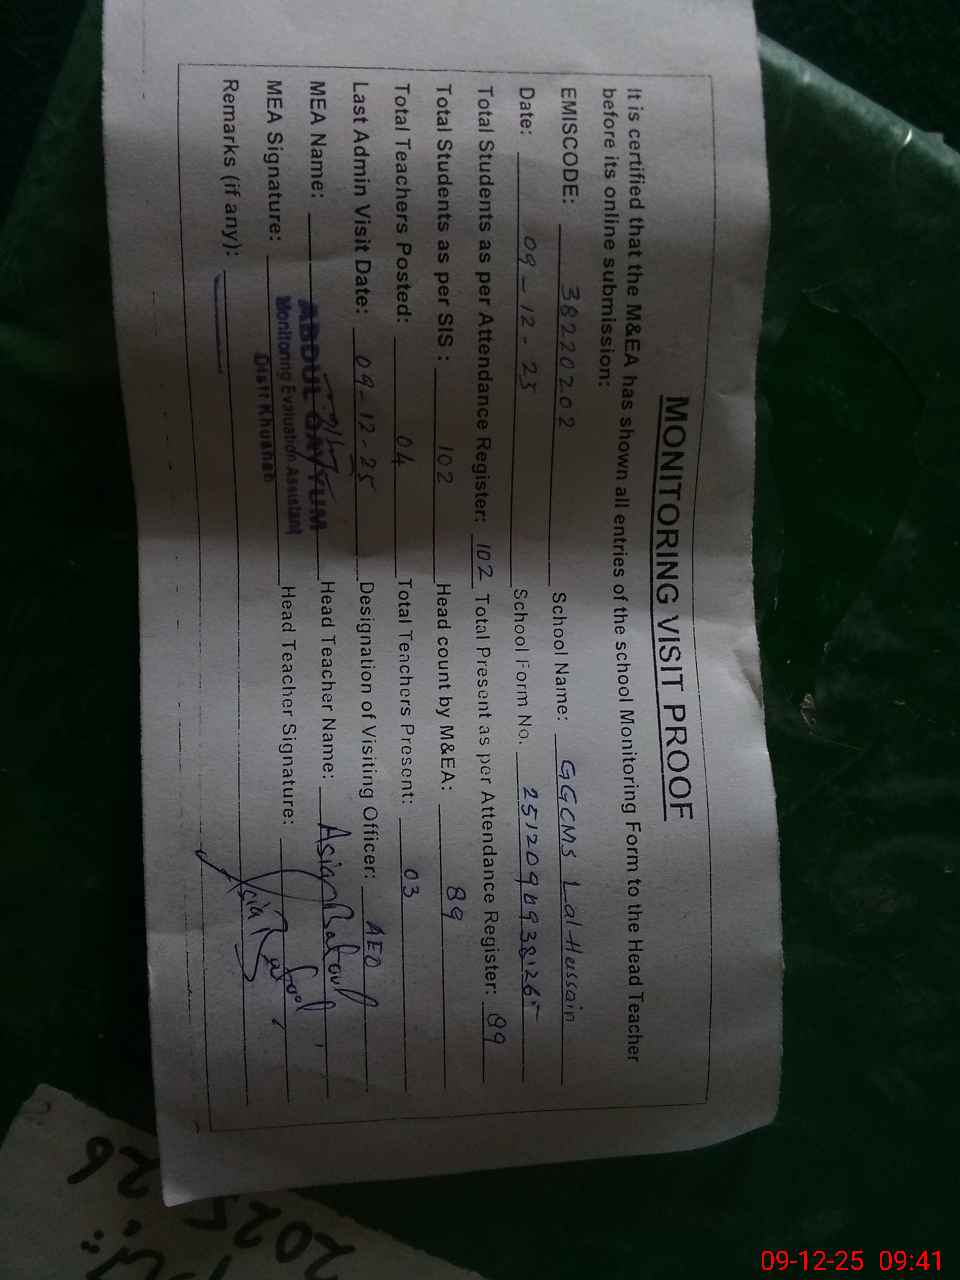 MONITORING VISIT PROOF
It is certified that the M&EA has shown all entries of the school Monitoring Form to the Head Teacher
before its online submission:
EMISCODE: 38220202 School Name: GGCMS Lal Hussain
Date: 09-12-25 School Form No.
Total Students as per Attendance Register: 102 Total Present as per Attendance Register: 89
Total Students as per SIS : 102 Head count by M&EA: 89
Total Teachers Posted: 04 Total Teachers Present: 03
Last Admin Visit Date: 09-12-25 Designation of Visiting Officer: AEO
MEA Name: ABDUL QAYYUM Head Teacher Name: Asia Batool
MEA Signature: Monitoring Evaluation Assistant Head Teacher Signature: Asia Batool
Distt Khushab
Remarks (if any):
09-12-25 09:41